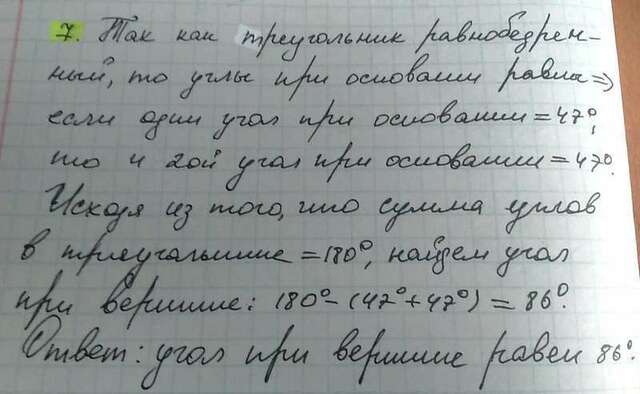 7. Так как треугольник равнобедрен-
ный, то углы при основании равны =>
если один угол при основании = 47°,
то и 2ой угол при основании = 47°.
Исходя из того, что сумма углов
в триугольнике = 180°, найдем угол
при вершине: 180° - (47° + 47°) = 86°.
Ответ: угол при вершине равен 86°.